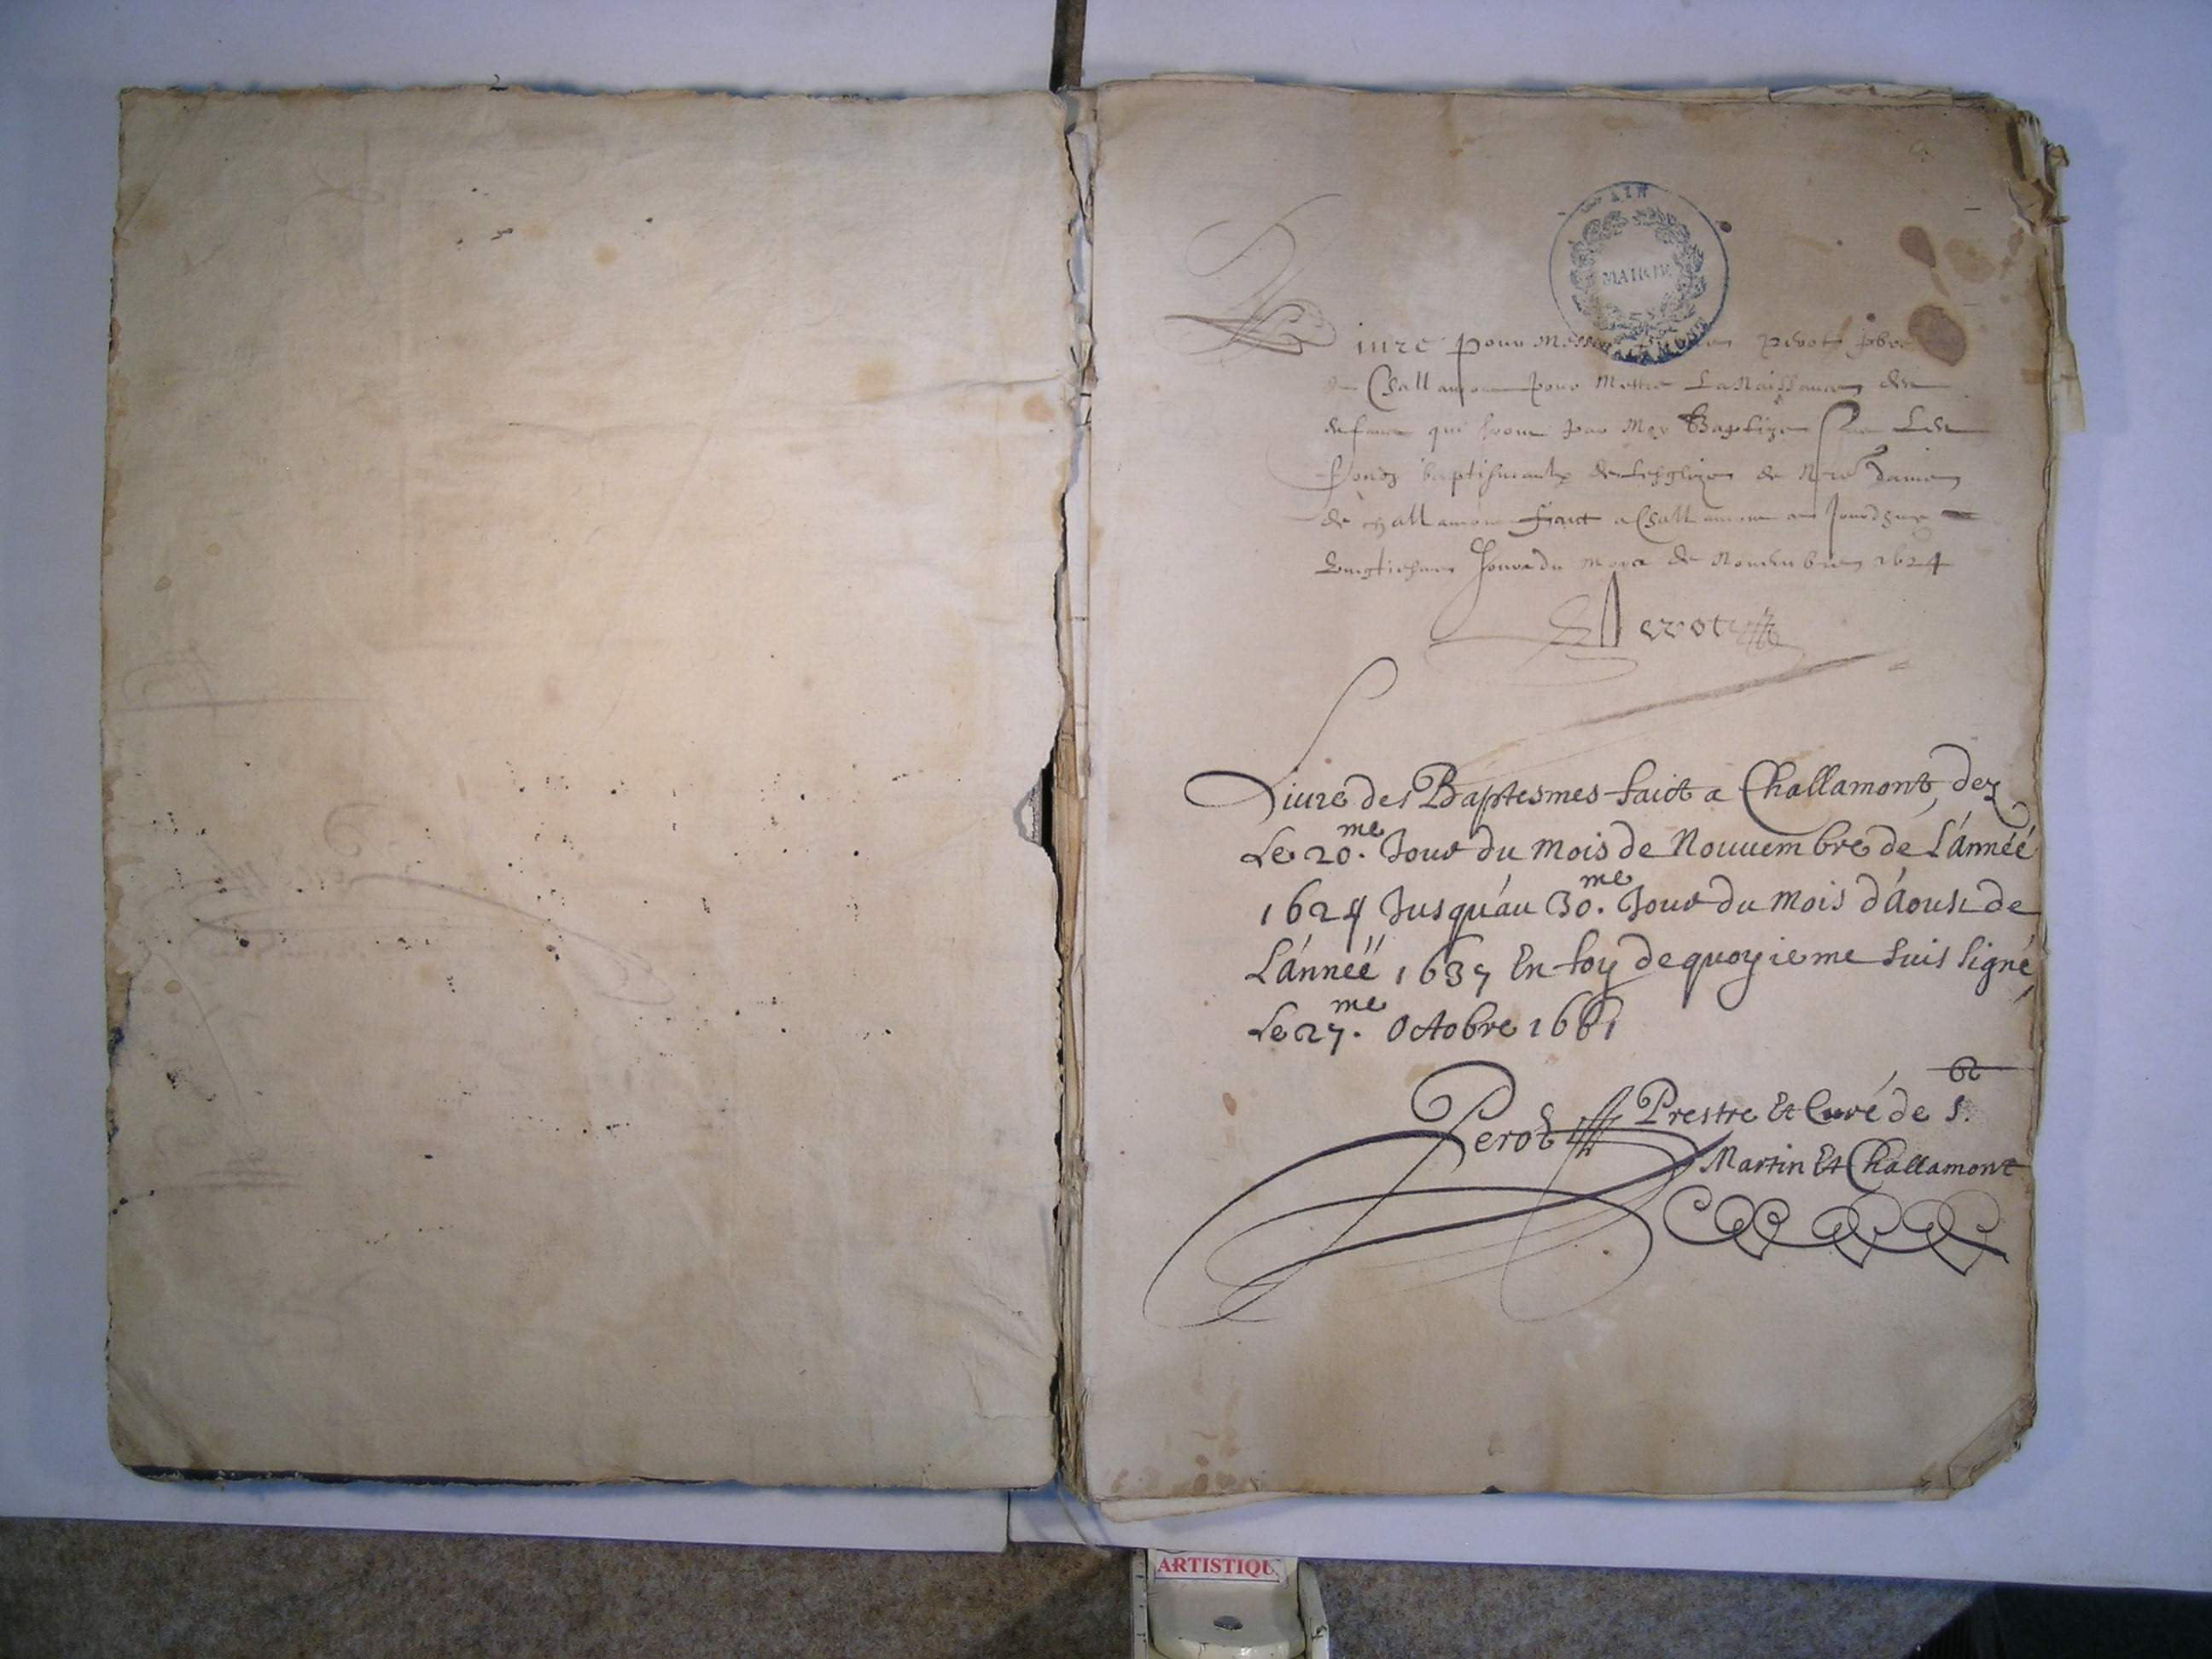 AIN
MAIRIE
CHALAMONT
Liure pour Messire perot pbre
de Challamont pour Mettre La Naissance des
enfans qui seront par Moy Baptizes sur Les
fondz baptismaulx de Lesglize de Nre Dame
de challamont faict a Challamont ce Jourdhuy
vingtiesme Jour du Moys de Novembre 1624
Perot
Liure des Baptesmes faict a Challamont, dez
Le 20.me Jour du Mois de Nouuembre de L'année
1624 Jusqu'au 30.me Jour du Mois d'Aoust de
L'année 1637 En foy de quoy ie me suis signé,
Le 27.me Octobre 1661
Perot Prestre Et Curé de St.
Martin Et Challamont
ARTISTIQU